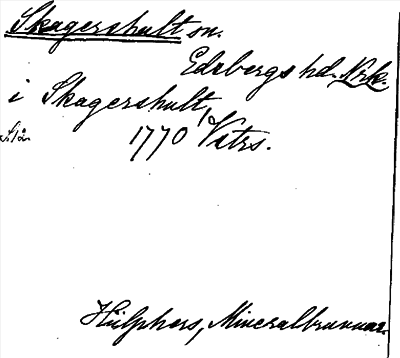 Skagershult sn.
Edsbergs hd. Nrk.
i Skagershult,
1770 Vitrs.
Hülphers, Mineralbrunnar.